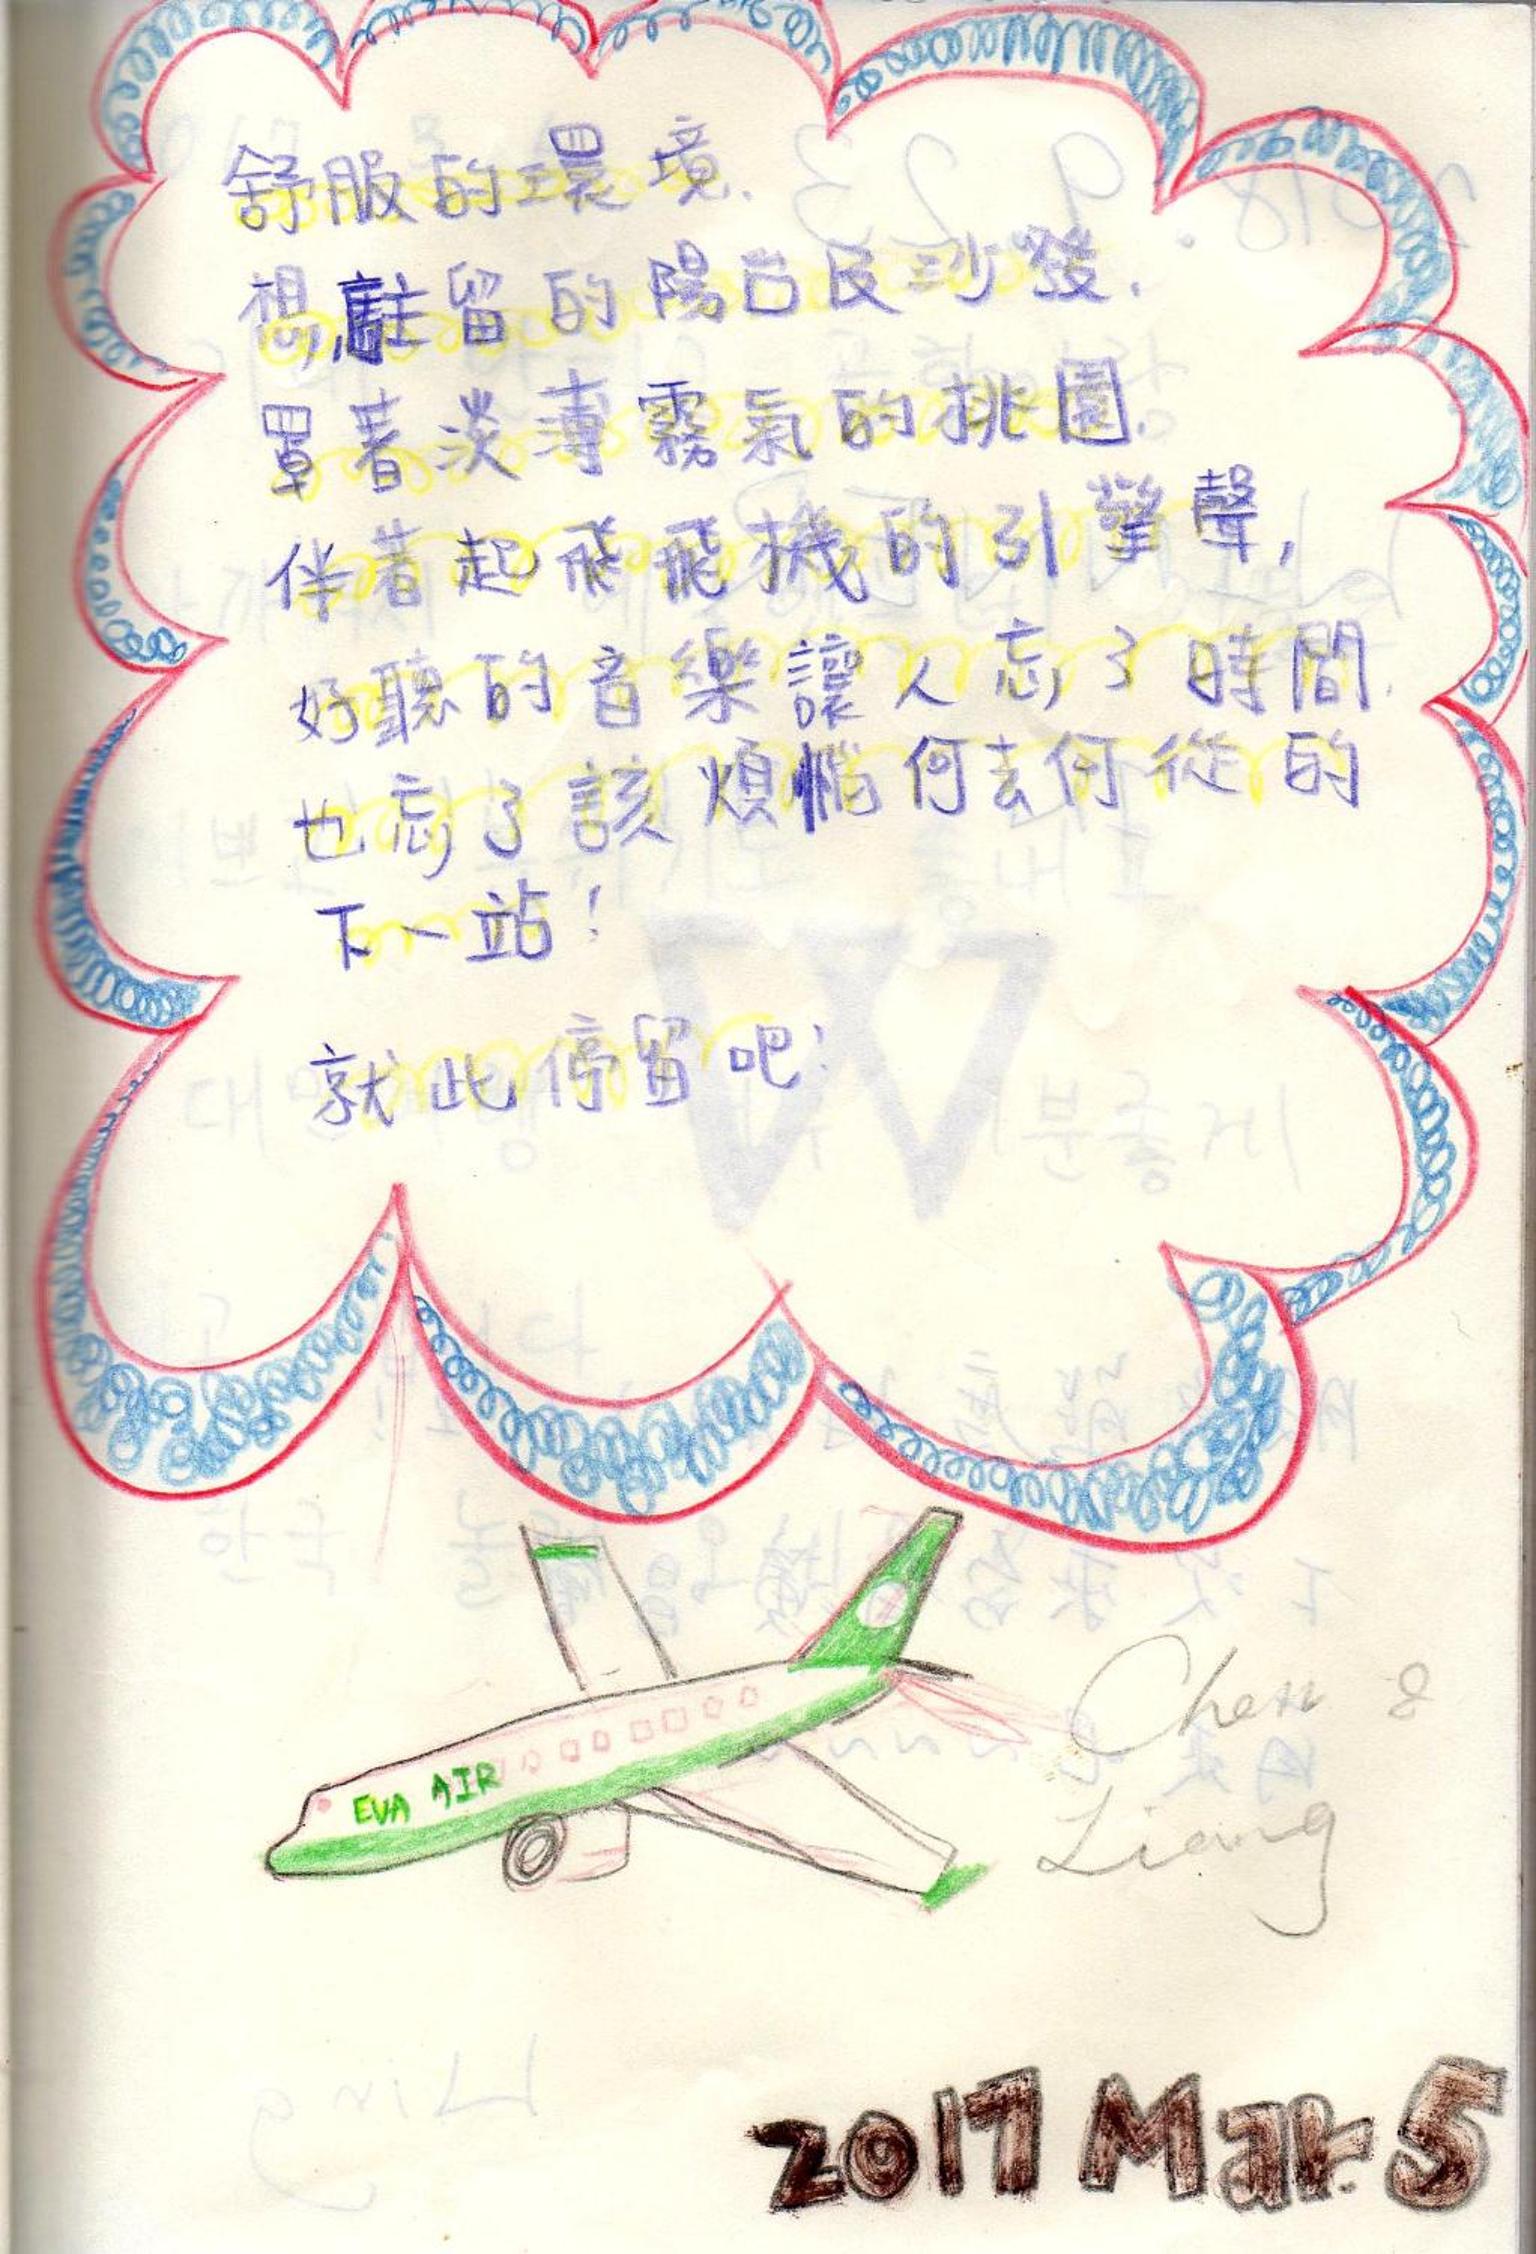 舒服的環境.
想駐留的陽台及沙發.
罩著淡薄霧氣的桃園.
伴著起飛飛機的引擎聲,
好聽的音樂讓人忘了時間.
也忘了該煩惱何去何從的
下一站!
就此停留吧!
EVA AIR
Chen &
Liang
2017 Mar. 5